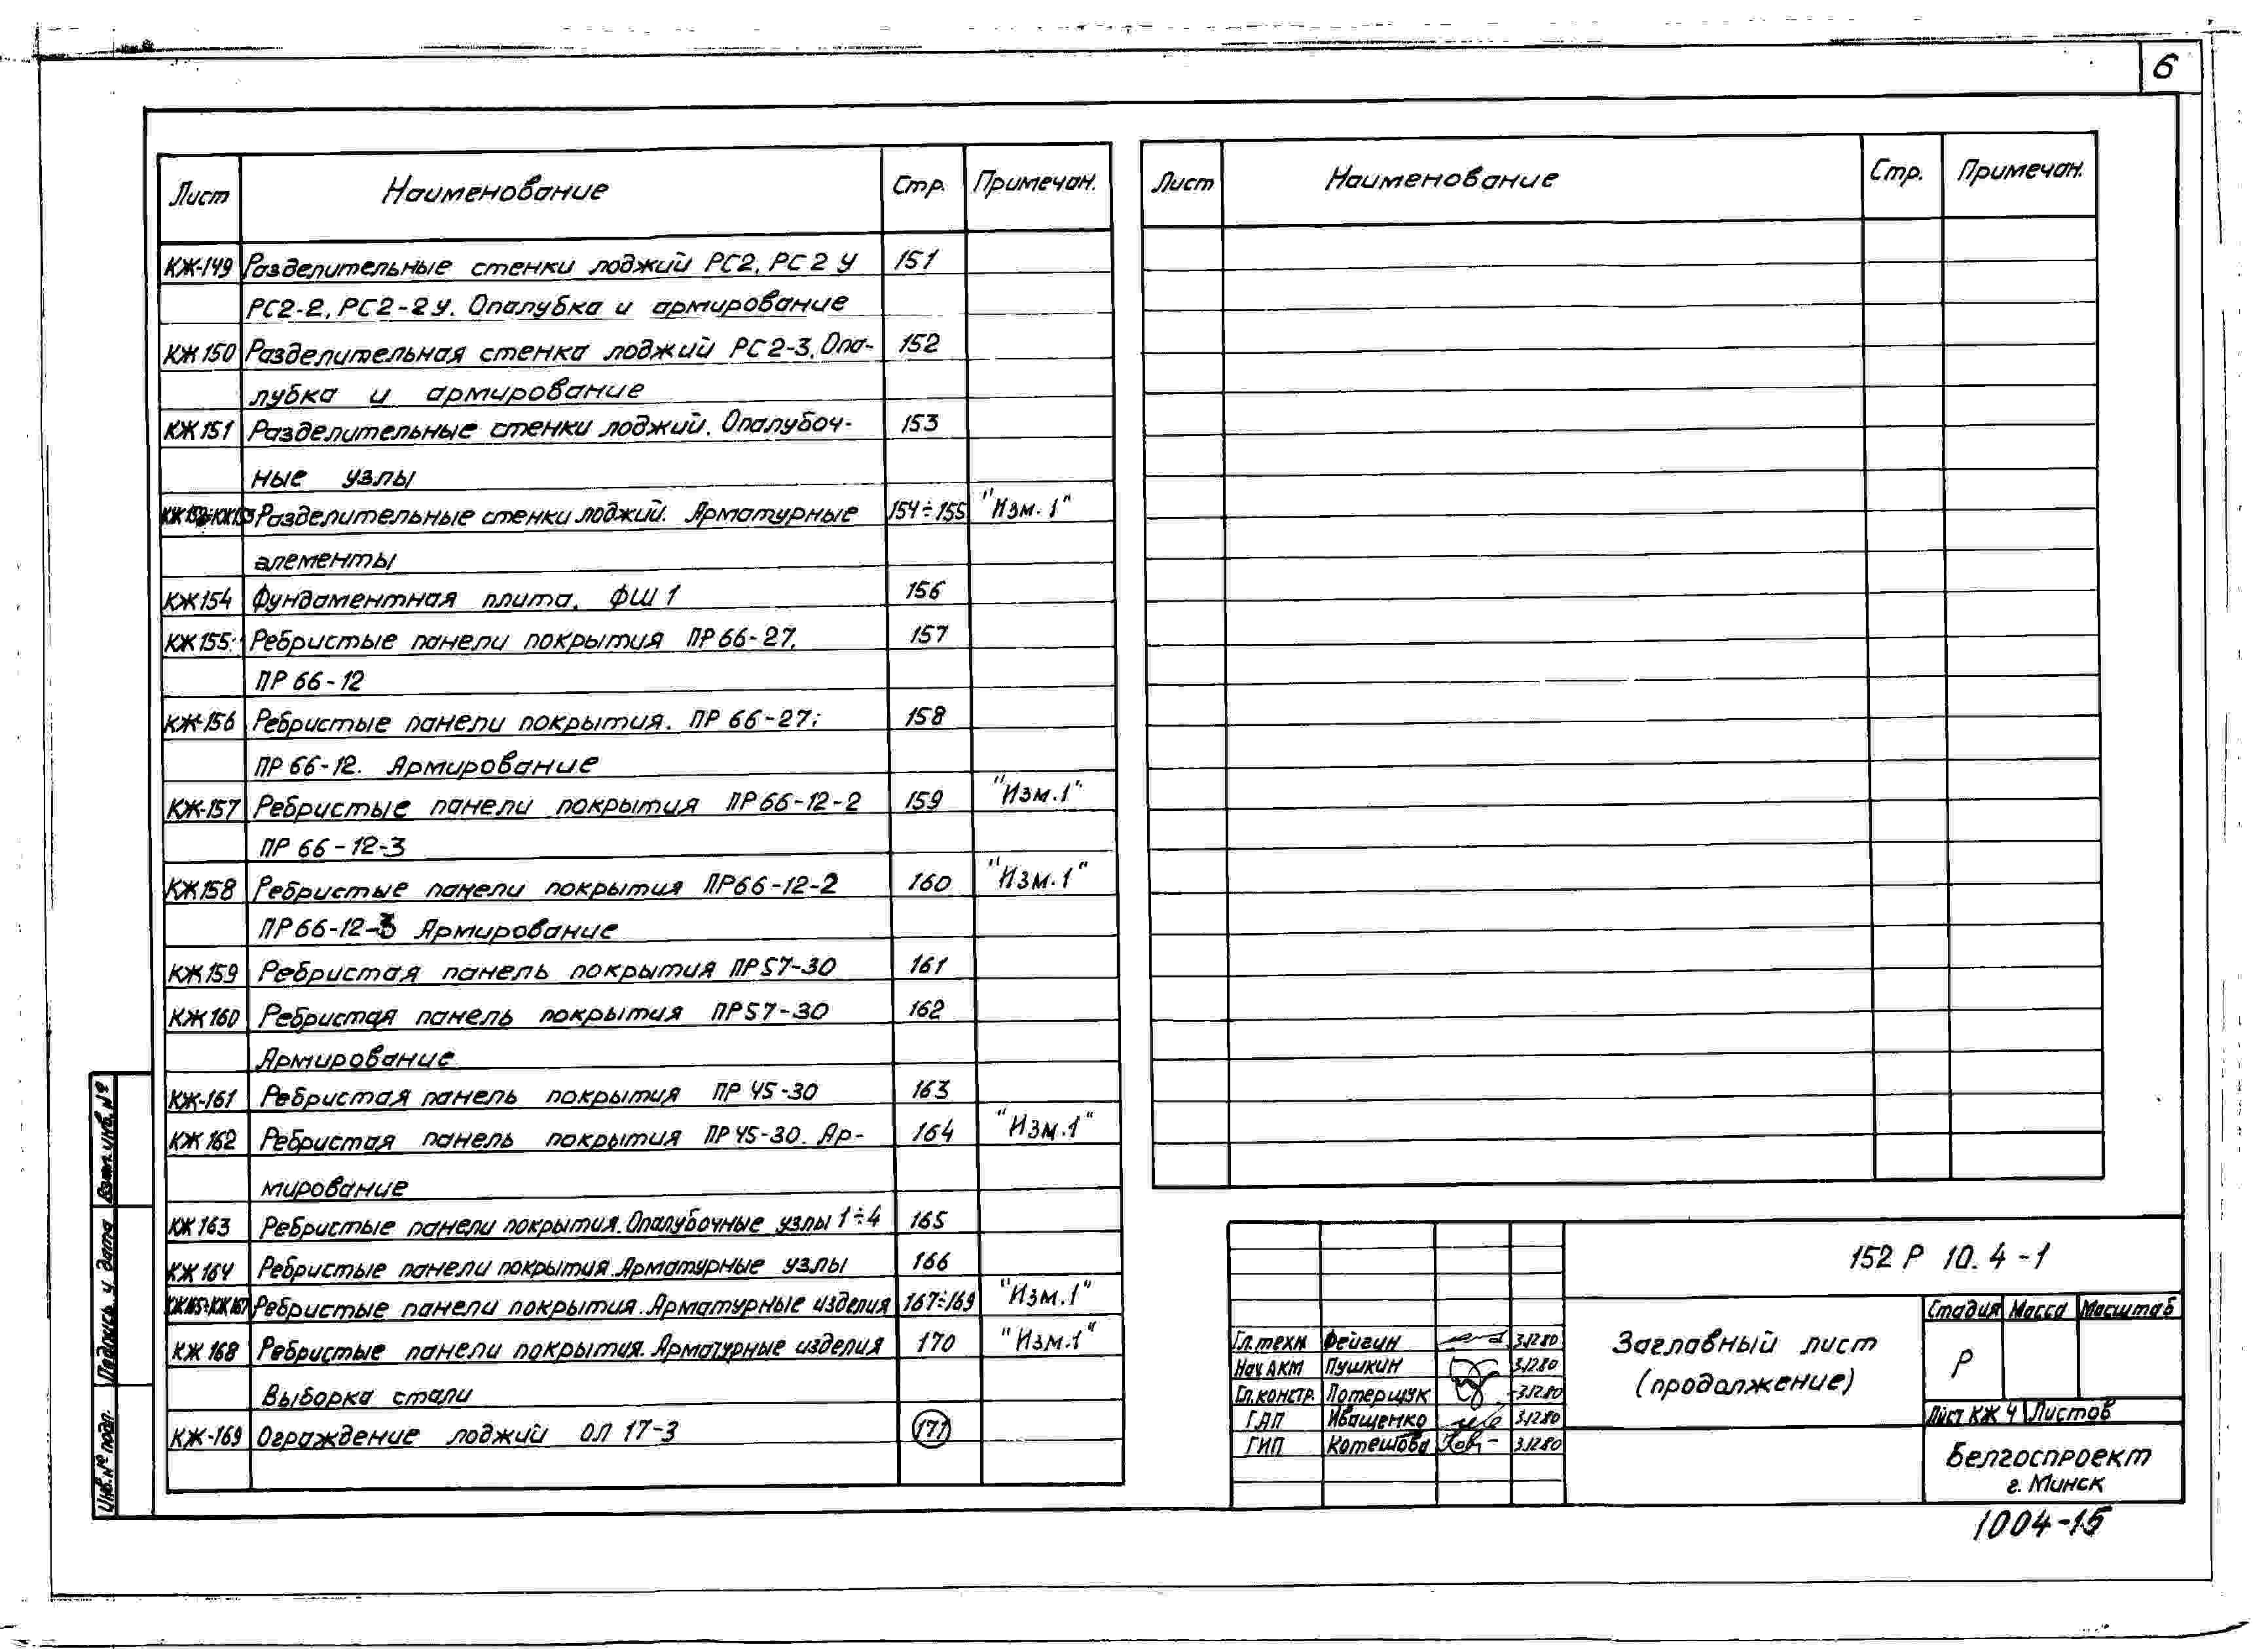 6
Лист Наименование Стр. Примечан.
КЖ-149 Разделительные стенки лоджий РС2, РС2У 151
РС2-2, РС2-2У. Опалубка и армирование
КЖ150 Разделительная стенка лоджий РС2-3. Опа- 152
лубка и армирование
КЖ151 Разделительные стенки лоджий. Опалубоч- 153
ные узлы
КЖ152÷КЖ153 Разделительные стенки лоджий. Арматурные 154÷155 "Изм.1"
элементы
КЖ154 Фундаментная плита. ФШ1 156
КЖ155 Ребристые панели покрытия ПР66-27, 157
ПР66-12
КЖ-156 Ребристые панели покрытия. ПР66-27; 158
ПР66-12. Армирование
КЖ-157 Ребристые панели покрытия ПР66-12-2 159 "Изм.1"
ПР66-12-3
КЖ158 Ребристые панели покрытия ПР66-12-2 160 "Изм.1"
ПР66-12-3 Армирование
КЖ159 Ребристая панель покрытия ПР57-30 161
КЖ160 Ребристая панель покрытия ПР57-30 162
Армирование
КЖ-161 Ребристая панель покрытия ПР45-30 163
КЖ162 Ребристая панель покрытия ПР45-30. Ар- 164 "Изм.1"
мирование
КЖ163 Ребристые панели покрытия. Опалубочные узлы 1÷4 165
КЖ164 Ребристые панели покрытия. Арматурные узлы 166
КЖ165÷КЖ167 Ребристые панели покрытия. Арматурные изделия 167÷169 "Изм.1"
КЖ168 Ребристые панели покрытия. Арматурные изделия 170 "Изм.1"
Выборка стали
КЖ-169 Ограждение лоджий ОЛ 17-3 171
Лист Наименование Стр. Примечан.
Взам.инв.№
Подпись и дата
Инв.№ подл.
152 Р 10.4-1
Заглавный лист
(продолжение)
Стадия Масса Масштаб
Р
Лист КЖ 4 Листов
Гл.техн Фейгин 3.12.80
Нач АКМ Пушкин 3.12.80
Гл.констр. Потерщук 3.12.80
ГАП Иващенко 3.12.80
ГИП Котешова 3.12.80
Белгоспроект
г. Минск
1004-15